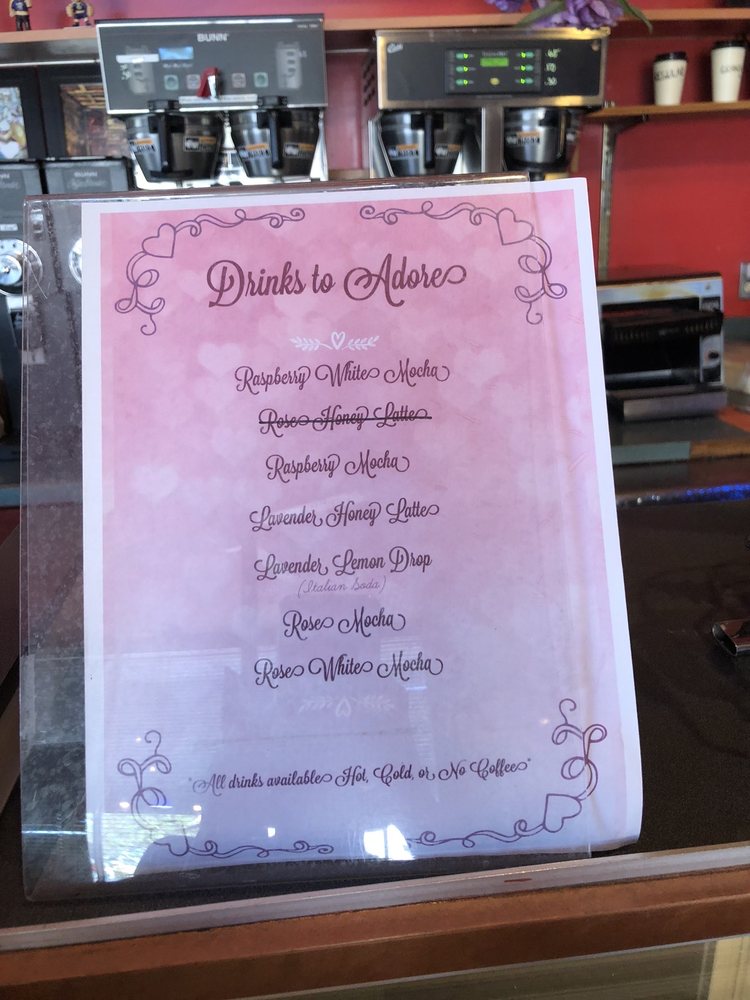 BUNN
Drinks to Adore
Raspberry White Mocha
Rose Honey Latte
Raspberry Mocha
Lavender Honey Latte
Lavender Lemon Drop
(Italian Soda)
Rose Mocha
Rose White Mocha
"All drinks available Hot, Cold, or No Coffee"